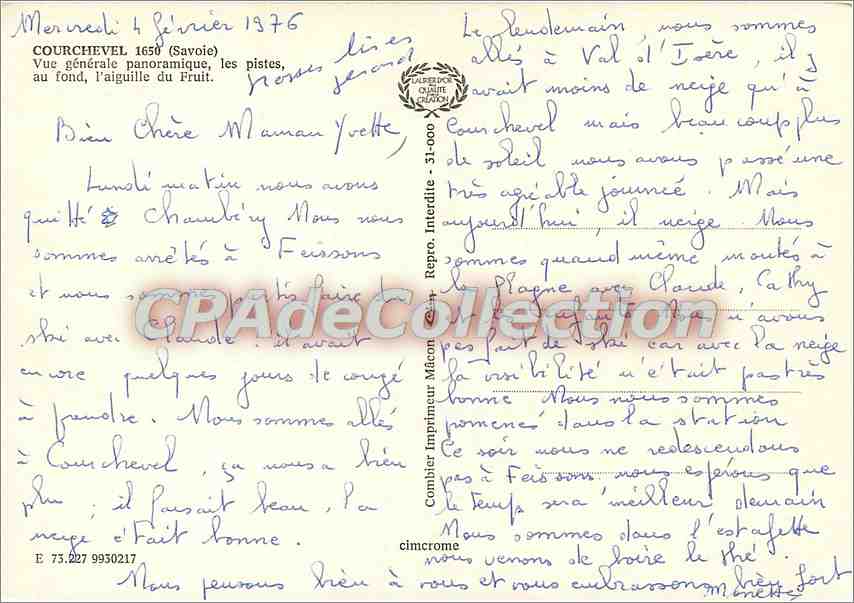 Mercredi 4 février 1976
COURCHEVEL 1650 (Savoie)
Vue générale panoramique, les pistes,
au fond, l'aiguille du Fruit.
grosses bises
gérard
LAURIER D'OR
DE
QUALITÉ
DE
CRÉATION
Bien Chère Maman Yvette,
Lundi matin nous avons
quitté Chambéry Nous nous
sommes arrêtés à Feissons
et nous sommes partis faire du
ski avec Claude. il avait
encore quelques jours de congé
à prendre. Nous sommes allés
à Courchevel, ça nous a bien
plu ; il faisait beau, la
neige était bonne.
E 73.227 9930217
Combier Imprimeur Mâcon Repro. Interdite - 31-000
cimcrome
CPAdeCollection.com
Le lendemain, nous sommes
allés à Val d'Isère, il y
avait moins de neige qu'à
Courchevel mais beaucoup plus
de soleil nous avons passé une
très agréable journée. Mais
aujourd'hui, il neige. Nous
sommes quand même montés à
la Plagne avec Claude, Cathy
et les enfants Nous n'avons
pas fait de ski car avec la neige
la visibilité n'était pas très
bonne Nous nous sommes
pomenés dans la station
Ce soir nous ne redescendons
pas à Feissons nous espérons que
le temps sera meilleur demain
Nous sommes dans l'estafette
nous venons de boire le thé.
Nous pensons bien à vous et vous embrassons bien fort
Monette